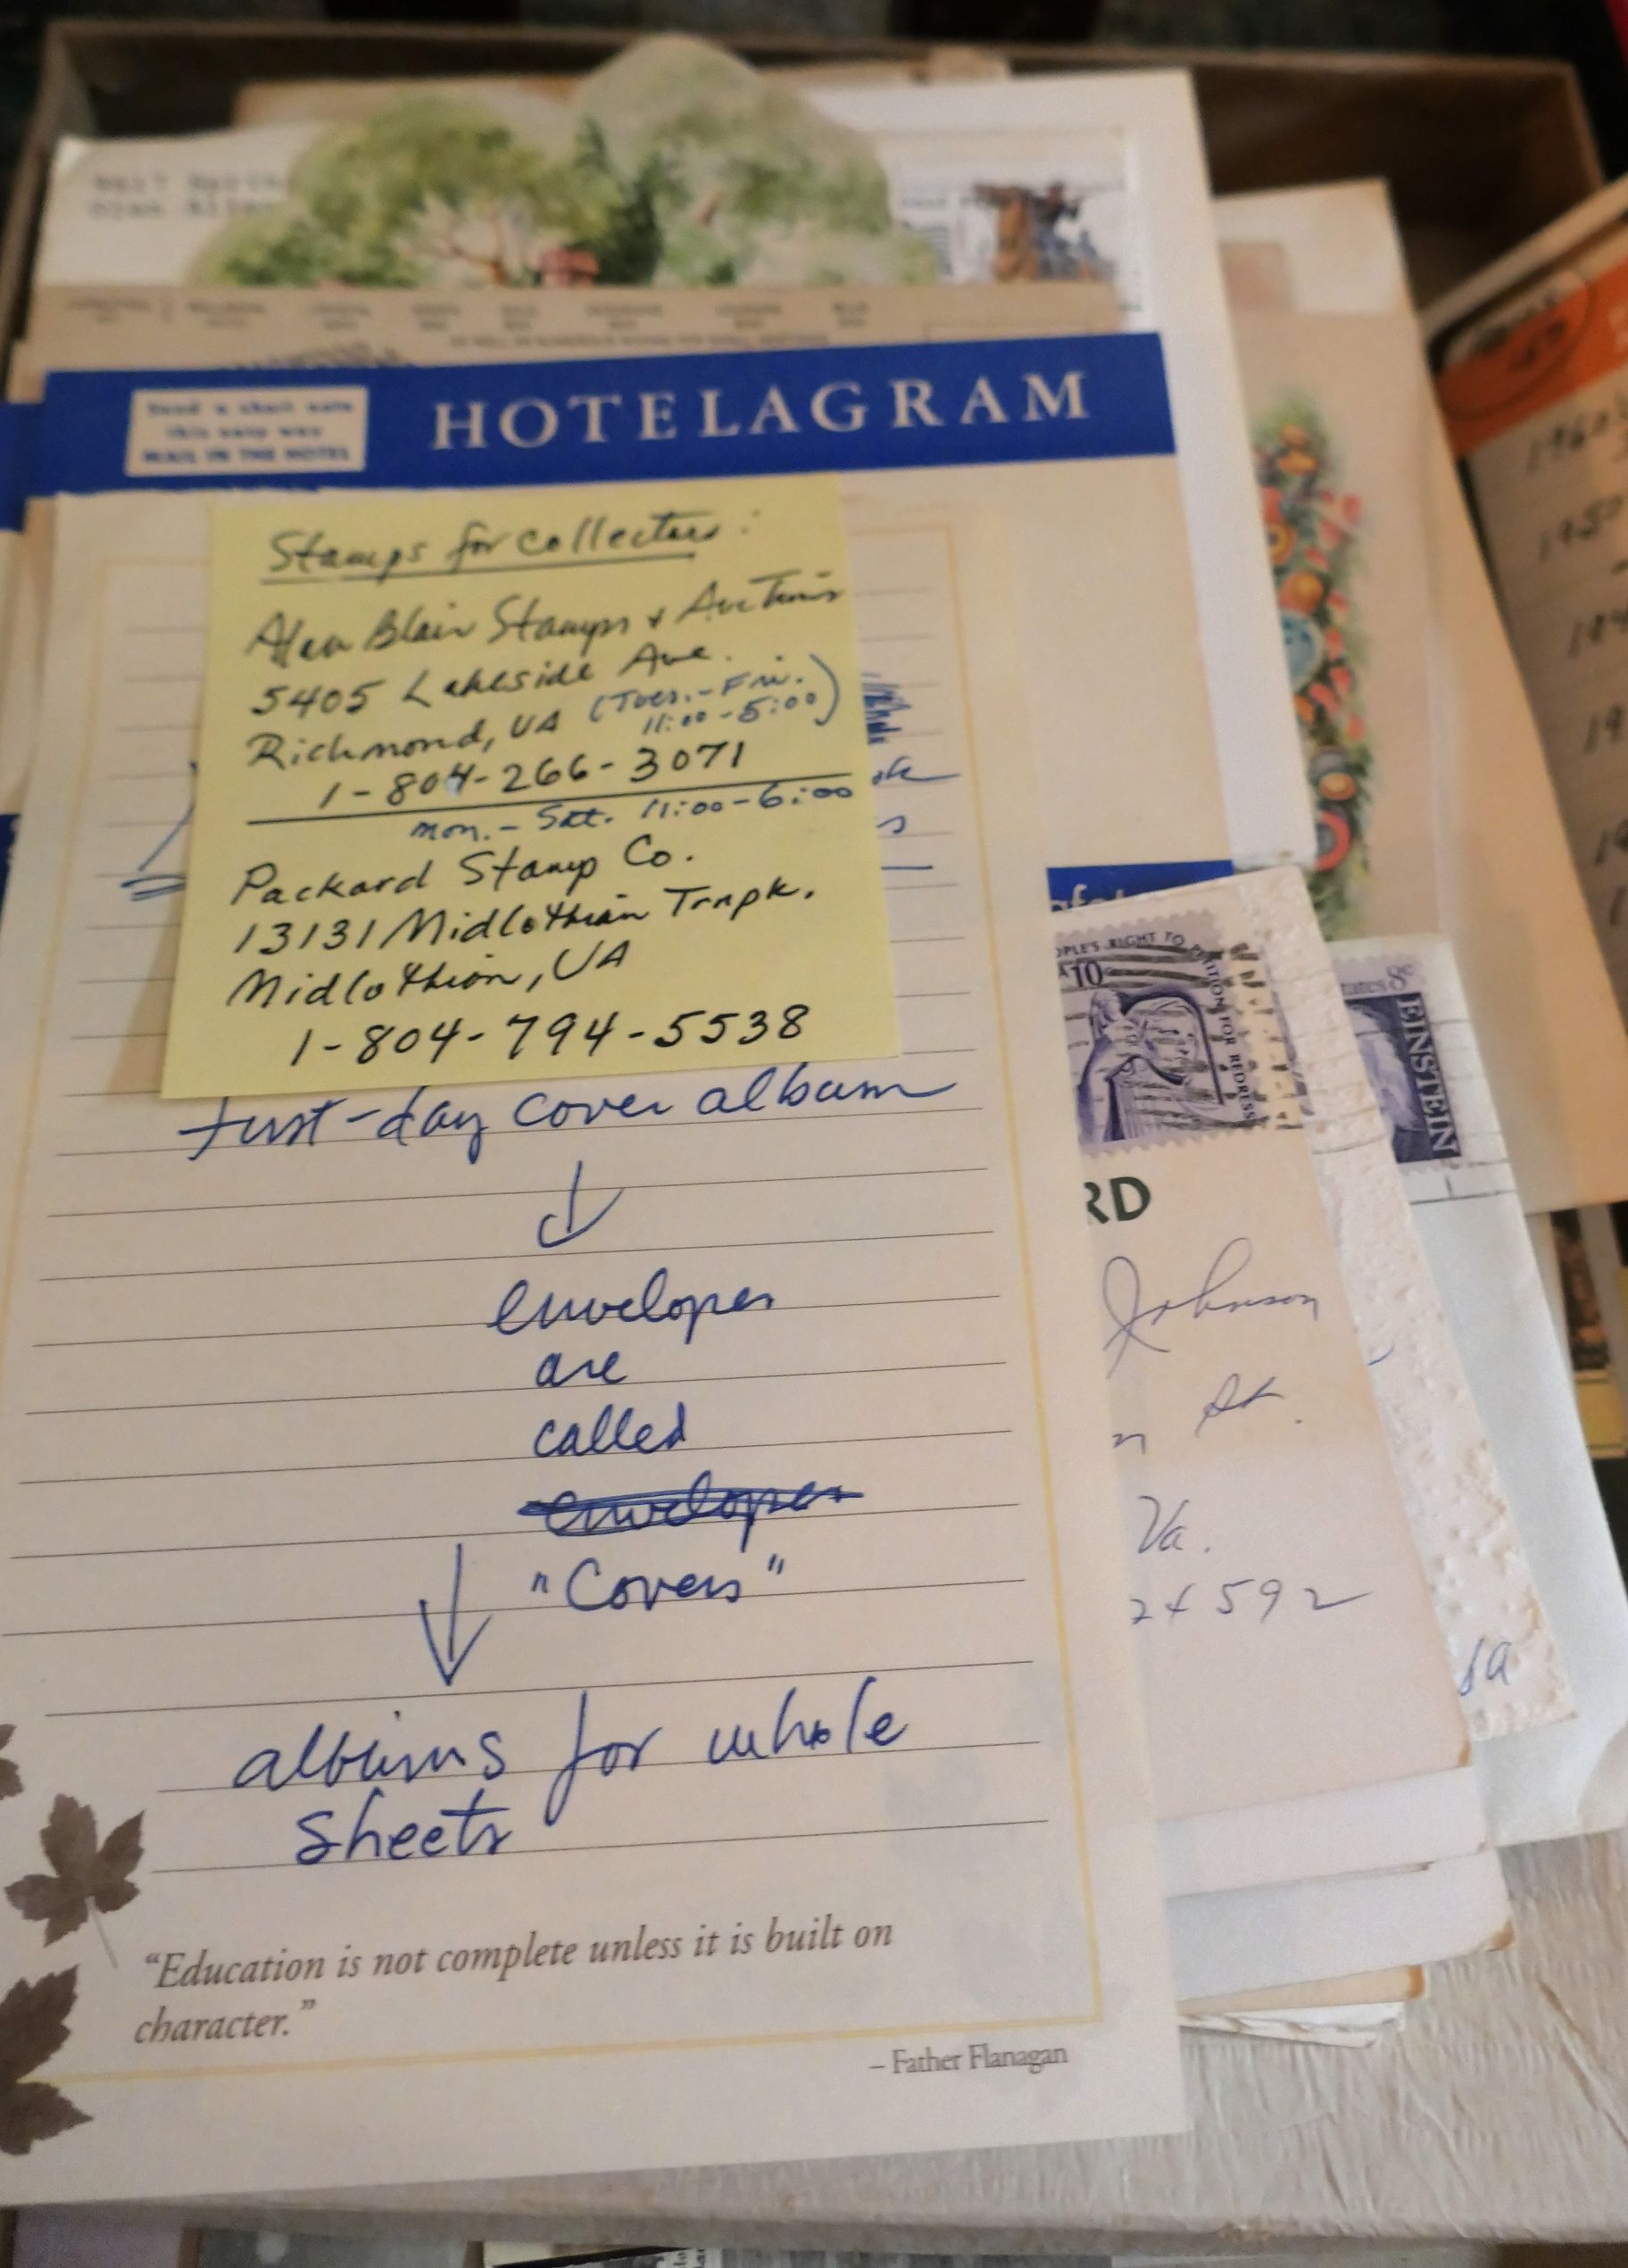 HOTELAGRAM
Send a short note
this easy way
MAIL IN THE HOTEL
Stamps for collectors:
Alan Blair Stamps & Auctions
5405 Lakeside Ave.
Richmond, VA (Tues.-Fri.
11:00-5:00)
1-804-266-3071
Mon.- Sat. 11:00-6:00
Packard Stamp Co.
13131 Midlothian Trnpk.
Midlothian, VA
1-804-794-5538
First-day cover album
envelopes
are
called
"Covers"
albums for whole
sheets
"Education is not complete unless it is built on
character."
– Father Flanagan
OPLE'S RIGHT TO PETITION FOR REDRESS
A 10c
tates 8c
EINSTEIN
RD
Johnson
n St.
Va.
24592
1960
1950